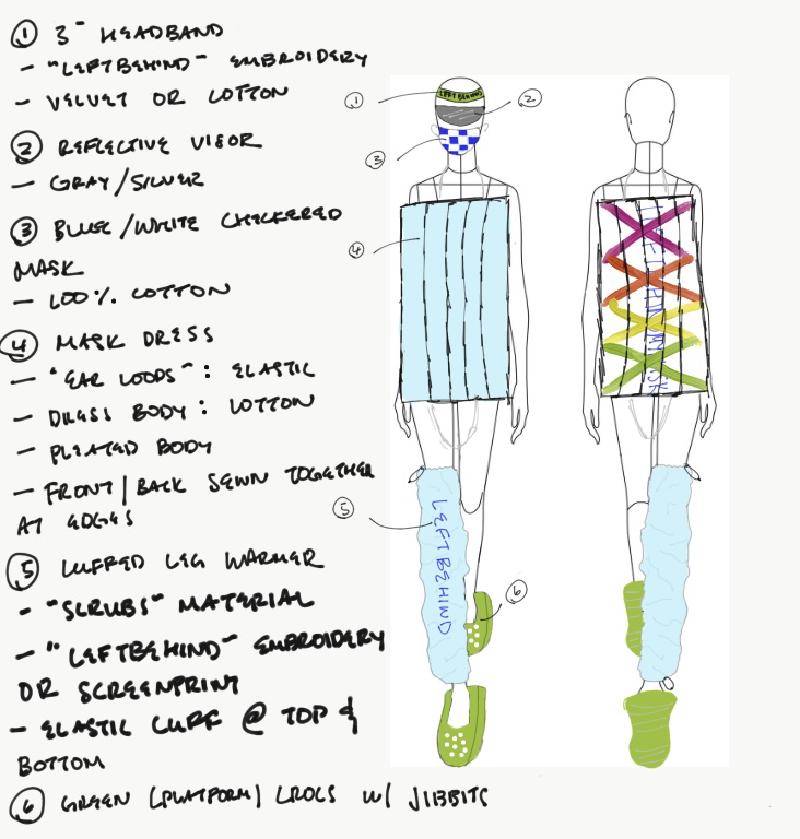 ① 3" HEADBAND
- "LEFTBEHIND" EMBROIDERY
- VELVET OR COTTON
② REFLECTIVE VISOR
- GRAY/SILVER
③ BLUE/WHITE CHECKERED
MASK
- 100% COTTON
④ MASK DRESS
- "EAR LOOPS": ELASTIC
- DRESS BODY: COTTON
- PLEATED BODY
- FRONT/BACK SEWN TOGETHER
AT EDGES
⑤ CUFFED LEG WARMER
- "SCRUBS" MATERIAL
- "LEFTBEHIND" EMBROIDERY
OR SCREENPRINT
- ELASTIC CUFF @ TOP &
BOTTOM
⑥ GREEN (PLATFORM) CROCS W/ JIBBITS
①
LEFTBEHIND
②
③
④
⑤
LEFTBEHIND
⑥